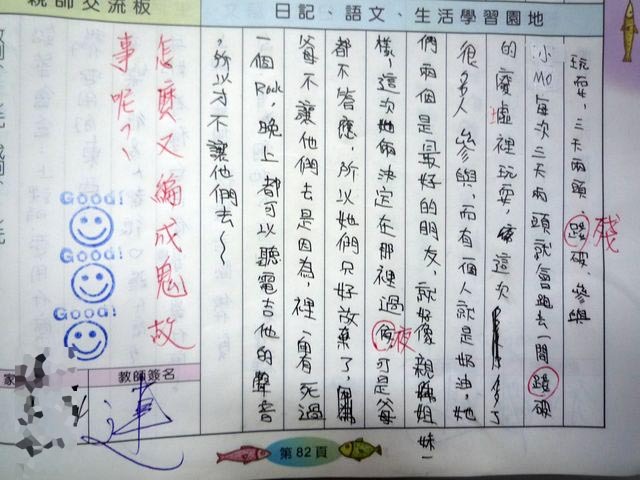 日記、語文、生活學習園地
玩耍,三天兩頭踐破、參與
殘
小MO每次三天兩頭就會跑去一間踐破
的廢墟裡玩耍,這次多了
很多人參與,而有一個人就是奶油,她
們兩個是最好的朋友,就好像親姐妹一
樣,這次她倆決定在那裡過可是父母
夜
都不答應,所以她們只好放棄了,
父母不讓他們去是因為,裡面有死過
一個Rock,晚上都可以聽電吉他的聲音
,所以才不讓他們去~
親師交流板
怎麼又編成鬼故
事呢?
Good!
Good!
Good!
教師簽名
連
家
第82頁